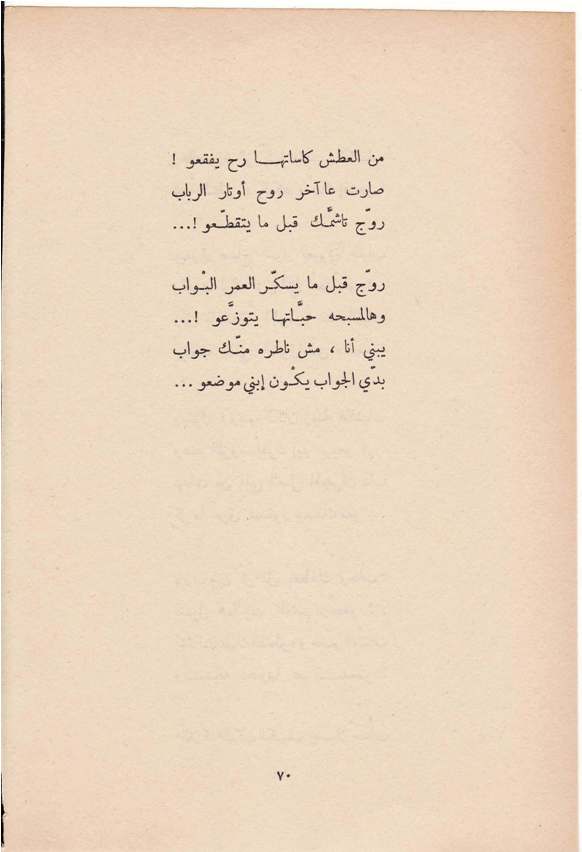 من العطش كاساتهـــا رح يفقعو !
صارت عا آخر روح أوتار الرباب
روّج تاشمَّك قبل ما يتقطّعو !...
روّج قبل ما يسكّر العمر البْواب
وهالمسبحه حبَّاتها يتوزَّعو !...
يبني أنا ، مش ناطره منّك جواب
بدّي الجواب يكون إبني موضعو ...
٧٠